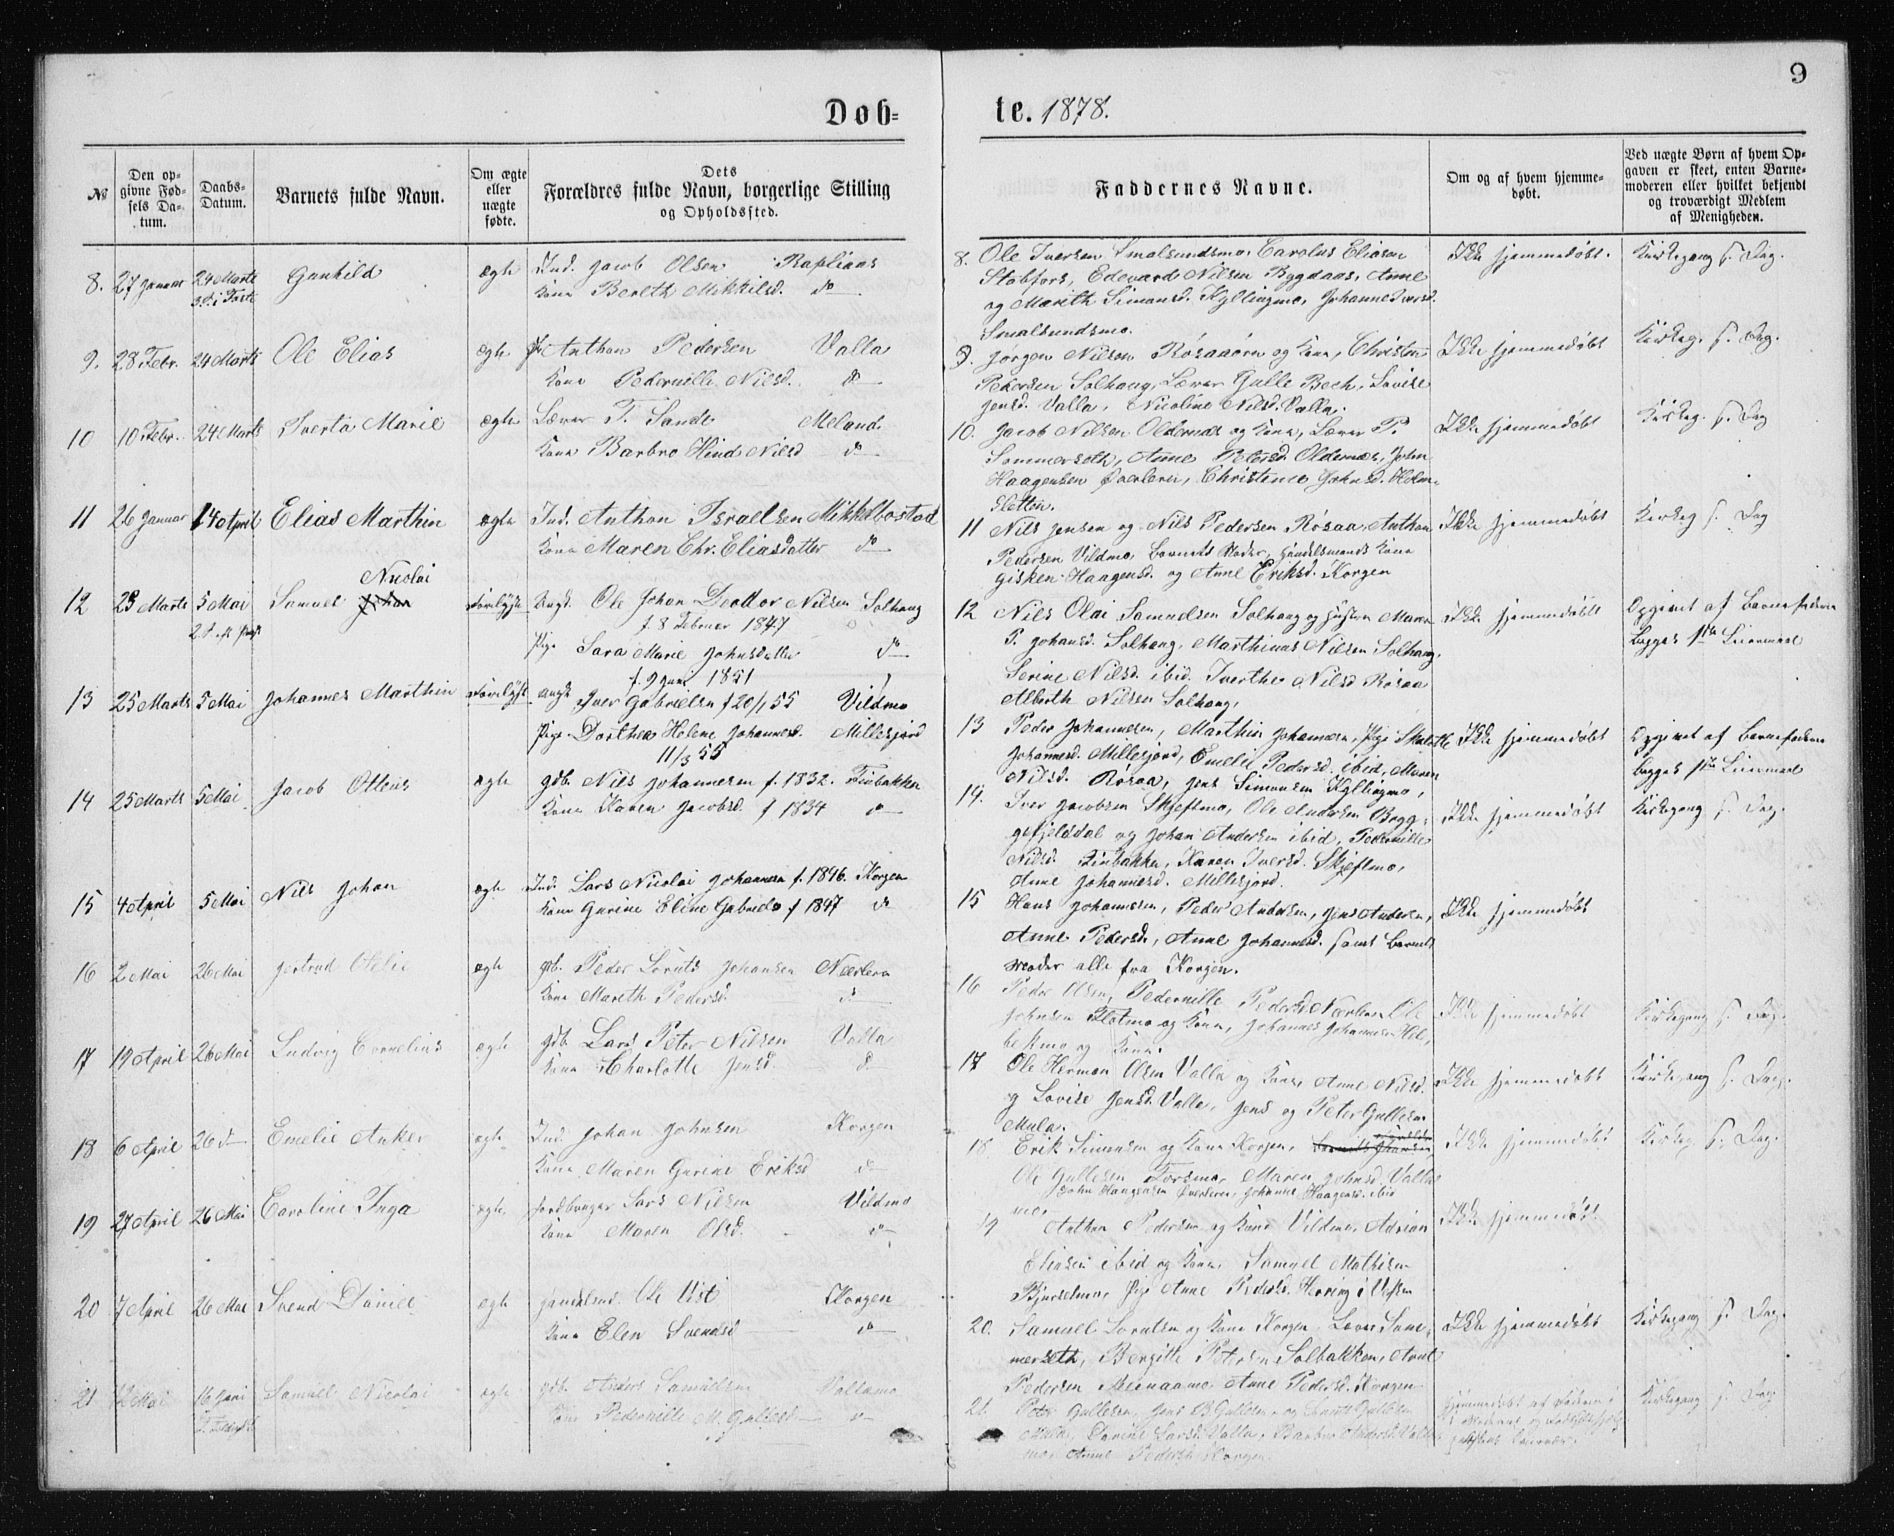 9
Døb=
te. 1878.
№
Den op-
givne Fød-
sels Da-
tum.
Daabs-
Datum.
Barnets fulde Navn.
Om ægte
eller
uægte
fødte.
Dets
Forældres fulde Navn, borgerlige Stilling
og Opholdssted.
Faddernes Navne.
Om og af hvem hjemme-
døbt.
Ved uægte Børn af hvem Op-
gaven er skeet, enten Barne-
moderen eller hvilket bekjendt
og troværdigt Medlem
af Menigheden.
8. 27 Januar 24 Marts Gunhild ægte Ind. Jacob Olsen
3 S. i Faste Kone Bereth Mikkilsd. do
9. 28 Febr. 24 Marts Ole Elias ægte Anthon Pedersen Valla
Kone Pedernille Nilsd. do
10 10 Febr. 24 Marts Iverta Marie ægte Lærer T. Sande Meland
Kone Barbro Hind Nilsd do
11 26 Januar 14 April Elias Marthin ægte Ind. Anthon Israelsen Mikkelbostad
Kone Maren Chr. Eliasdatter do
12 25 Marts 5 Mai Samuel Nicolai Ungk. Ole Johan Deollor Nilsen Solhaug
f 8 Februar 1847
Pige Sara Marie Johnsdatter do
f. 9 Juni 1851
13 25 Marts 5 Mai Johannes Marthin Ungk Iver Gabrielsen f 20/1 55 Vildmo
Pige Dorthea Helene Johannesd. Millesjord
11/3 55
14 25 Marts 5 Mai Jacob Otteus ægte gdb. Nils Johannesen f. 1832. Finbakken
Kone Karen Jacobsd. f 1834 do
15 4 April 5 Mai Nils Johan ægte Ind. Lars Nicolai Johannesen f. 1846. Korgen
Kone Gurine Eline Gabriels f 1847 do
16 2 Mai 26 Mai Gertrud Otilie ægte gdb. Peder Lornts Johansen Nerleren
Kone Mareth Pedersd. do
17 19 April 26 Mai Ludvig Cornelius ægte gdb. Lars Peter Nilsen Valla
Kone Charlotte Jensd. do
18 6 April 26 do Emelie Anker ægte Ind. Johan Johnsen Korgen
Kone Maren Gurine Eriksd do
19 27 April 26 Mai Caroline Inga ægte Jordbruger Lars Nilsen Vildmo
Kone Maren Olsd. do
20 7 April 26 Mai Svend Daniel ægte Handelsmd. Ole Vist Korgen
Kone Elen Svendsd do
21 12 Mai 16 Juni Samuel Nicolai ægte gdb. Anders Samuelsen Vallamo
Kone Pedernille M. Gullesd do
8. Ole Iversen Smalsundsmo, Carolus Eliasen Ikke hjemmedøbt. Kirkegang s. Dag.
Stabfors, Edevard Nilsen Bygdaas, Anne
og Marith Simonsd. Kyllingmo, Johanne Iversd.
Smalsundsmo.
9. Jørgen Nilsen Røsaaøren og Kone, Christen Ikke hjemmedøbt Kirkeg. s. Dag.
Pedersen Solhaug, Lærer Gulle Bech, Lovise
Jensd. Valla, Nicoline Nilsd. Valla.
10. Jacob Nilsen Oldernæs og Kone, Lærer P. Ikke hjemmedøbt Kirkeg. s. Dag
Sommerseth, Anne Petersd. Oldernæs, John
Haagensen Øverleren, Christence Johnsd. Holm-
Sletten.
11 Nils Jensen og Nils Pedersen Røsaa, Anthon Ikke hjemmedøbt Kirkeg s. Dag
Pedersen Vildmo, Barnets Moder, Handelsmands Kone
Gisken Haagensd. og Anne Eriksd. Korgen
12 Nils Olai Samuelsen Solhaug og Hustru Maren Ikke hjemmedøbt Opgivet af Barnefaderen
P. Johansd. Solhaug, Marthinus Nilsen Solhaug, begges 1ste Leiermaal
Serine Nilsd. ibid. Iverthe Nilsd Røsaa
Alberth Nilsen Solhaug,
13 Peder Johannesen, Marthin Johannesen, Pige Ikke hjemmedøbt Opgivet af Barnefaderen
Johannesd. Millesjord, Emelie Pedersd. ibid, Maren begges 1ste Leiermaal
Nilsd. Røsaa, Jens Simonsen Kyllingmo,
14. Iver Jacobsen Skjeftmo, Ole Andersen Bryg- Ikke hjemmedøbt Kirkegang s. Dag.
gefjelddal og Johan Andersen ibid, Pedernille
Nilsd. Finbakken, Karen Iversd. Skjeftmo,
Anne Johannesd. Millesjord.
15 Hans Johannesen, Peder Andersen, Jens Andersen, Ikke hjemmedøbt
Anne Pedersd., Anne Johannesd. samt Barnets
Moder alle fra Korgen.
16 Peder Olsen, Pedernille Pedersd Nerleren Ole Ikke hjemmedøbt Kirkegang s. Dag.
Johnsen Flotmo og Kone, Johannes Johannesen
og Kone.
17 Ole Herman Olsen Valla og Kone, Anne Nilsd. Ikke hjemmedøbt Kirkegang s. Dag.
og Lovise Jensd. Valla, Jens og Peter Gullesen
Mula.
18. Erik Simonsen og Kone Korgen, Ikke hjemmedøbt Kirkeg s. Dag.
Ole Gullesen Forsmo, Maren Johnsd. Valla
John Haagensen Øverleren, Johanne Haagensd. ibid
19 Anthon Pedersen og Kone Vildmo, Adrian Ikke hjemmedøbt.
Eliasen ibid og Kone, Samuel Mathisen
Bjurselmo, Pige Anne Pedersd. Herring i Vefsen
20. Samuel Lorntsen og Kone Korgen, Lærer Som- Ikke hjemmedøbt Kirkegang s. Dag.
merseth, Bergitte Petersen Solbakken, Arnt
Pedersen, Anne Pedersd. Korgen
21. Peter Gullesen, Jens B. Gullesen og Gullesen hjemmedøbt af Kirkegang s. Dag
Mula, Larsd. Valla, Barbro Andersd. Valla-
mo, Anne Pedersd. Korgen.